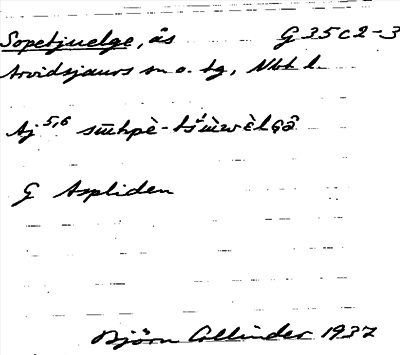 Sopetjuelge, ås G 35 c 2-3
Arvidsjaurs sn o. tg, Nbt l.
Aj 5,6
G Aspliden
Björn Collinder 1937